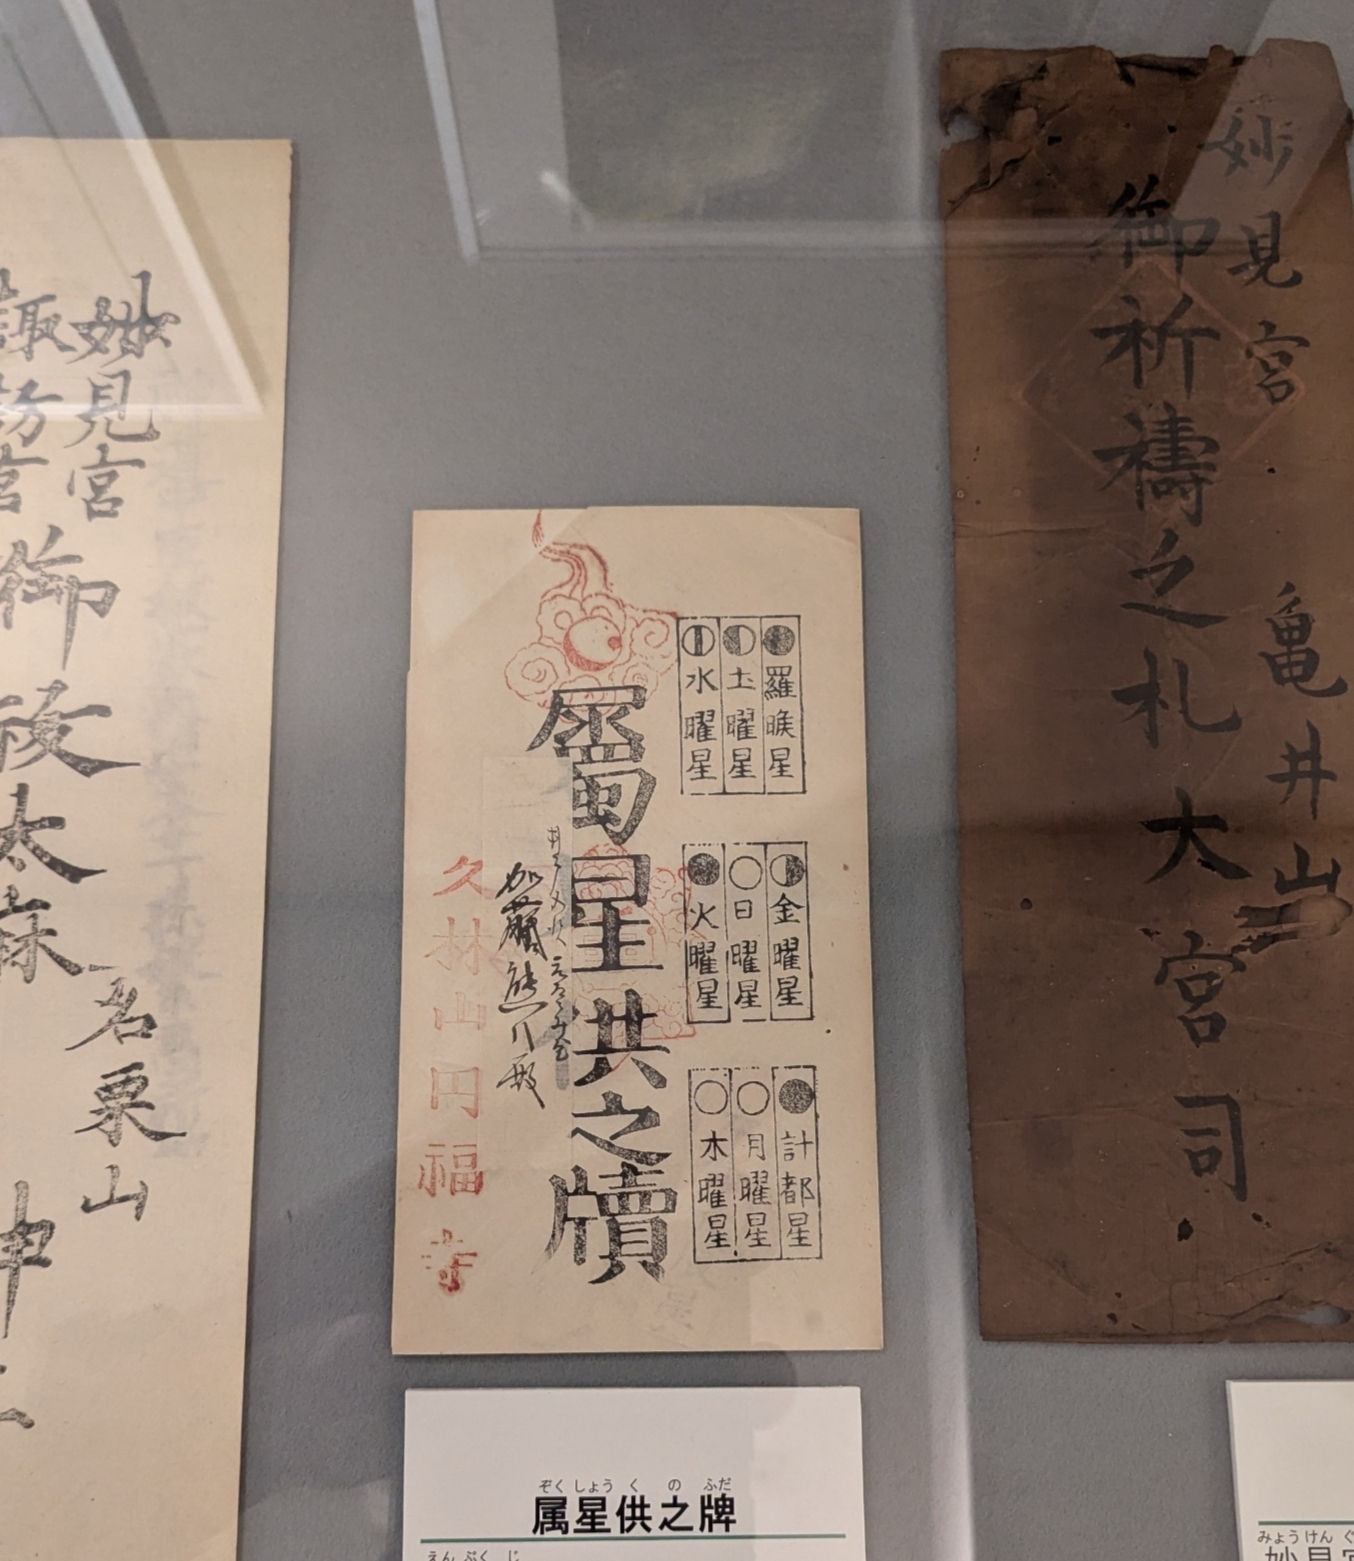 妙見宮
亀井山
御祈禱之札 大宮司
羅睺星
土曜星
水曜星
金曜星
日曜星
火曜星
計都星
月曜星
木曜星
屬星共之牘
加藤
殿
久林山円福寺
妙見宮
諏訪宮
御祓太麻
名栗山
ぞくしょうくのふだ
属星供之牌
えんぷくじ
みょうけんぐ
妙見宮